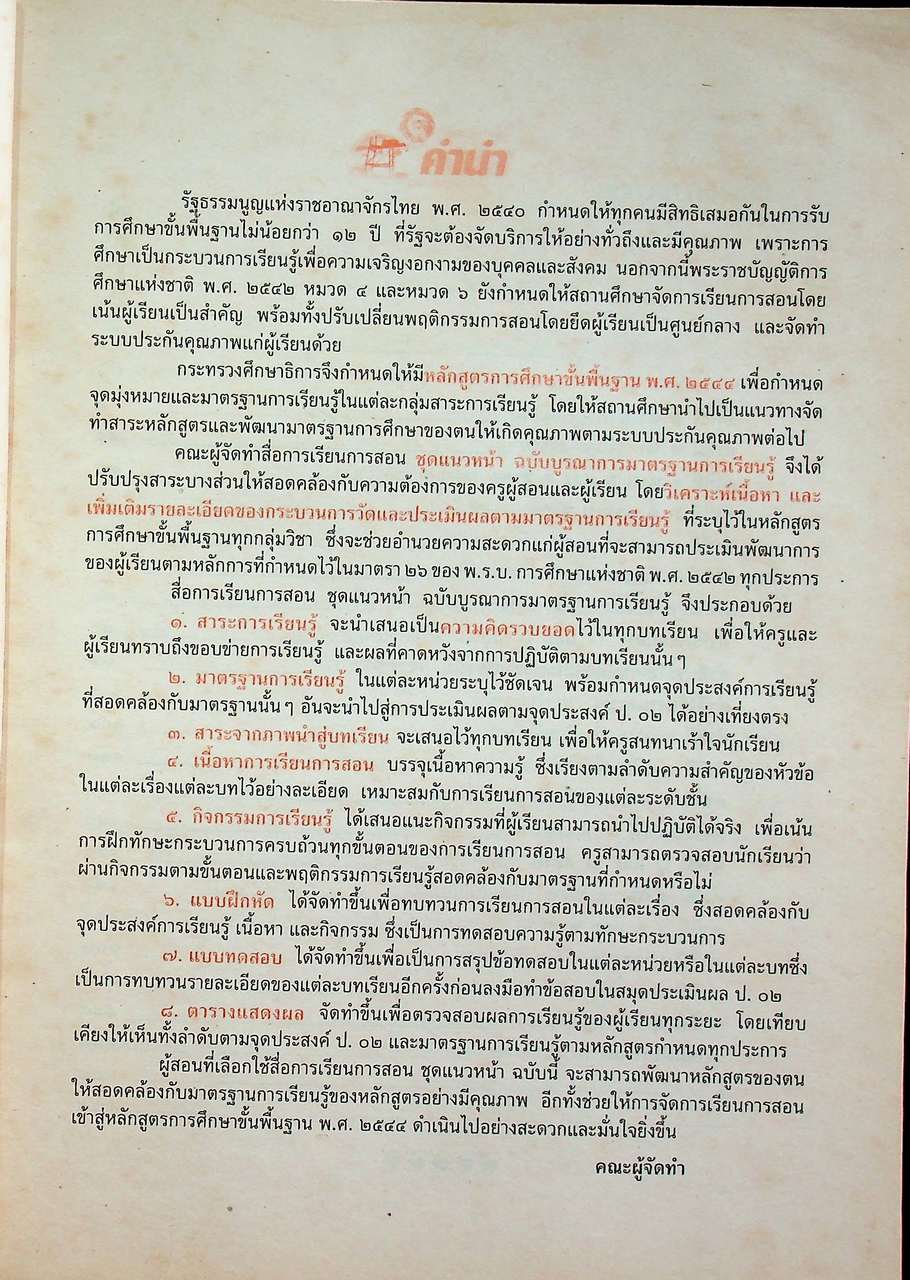 คำนำ
รัฐธรรมนูญแห่งราชอาณาจักรไทย พ.ศ. ๒๕๔๐ กำหนดให้ทุกคนมีสิทธิเสมอกันในการรับ
การศึกษาขั้นพื้นฐานไม่น้อยกว่า ๑๒ ปี ที่รัฐจะต้องจัดบริการให้อย่างทั่วถึงและมีคุณภาพ เพราะการ
ศึกษาเป็นกระบวนการเรียนรู้เพื่อความเจริญงอกงามของบุคคลและสังคม นอกจากนี้พระราชบัญญัติการ
ศึกษาแห่งชาติ พ.ศ. ๒๕๔๒ หมวด ๔ และหมวด ๖ ยังกำหนดให้สถานศึกษาจัดการเรียนการสอนโดย
เน้นผู้เรียนเป็นสำคัญ พร้อมทั้งปรับเปลี่ยนพฤติกรรมการสอนโดยยึดผู้เรียนเป็นศูนย์กลาง และจัดทำ
ระบบประกันคุณภาพแก่ผู้เรียนด้วย
กระทรวงศึกษาธิการจึงกำหนดให้มีหลักสูตรการศึกษาขั้นพื้นฐาน พ.ศ. ๒๕๔๔ เพื่อกำหนด
จุดมุ่งหมายและมาตรฐานการเรียนรู้ในแต่ละกลุ่มสาระการเรียนรู้ โดยให้สถานศึกษานำไปเป็นแนวทางจัด
ทำสาระหลักสูตรและพัฒนามาตรฐานการศึกษาของตนให้เกิดคุณภาพตามระบบประกันคุณภาพต่อไป
คณะผู้จัดทำสื่อการเรียนการสอน ชุดแนวหน้า ฉบับบูรณาการมาตรฐานการเรียนรู้ จึงได้
ปรับปรุงสาระบางส่วนให้สอดคล้องกับความต้องการของครูผู้สอนและผู้เรียน โดยวิเคราะห์เนื้อหา และ
เพิ่มเติมรายละเอียดของกระบวนการวัดและประเมินผลตามมาตรฐานการเรียนรู้ ที่ระบุไว้ในหลักสูตร
การศึกษาขั้นพื้นฐานทุกกลุ่มวิชา ซึ่งจะช่วยอำนวยความสะดวกแก่ผู้สอนที่จะสามารถประเมินพัฒนาการ
ของผู้เรียนตามหลักการที่กำหนดไว้ในมาตรา ๒๖ ของ พ.ร.บ. การศึกษาแห่งชาติ พ.ศ. ๒๕๔๒ ทุกประการ
สื่อการเรียนการสอน ชุดแนวหน้า ฉบับบูรณาการมาตรฐานการเรียนรู้ จึงประกอบด้วย
๑. สาระการเรียนรู้ จะนำเสนอเป็นความคิดรวบยอดไว้ในทุกบทเรียน เพื่อให้ครูและ
ผู้เรียนทราบถึงขอบข่ายการเรียนรู้ และผลที่คาดหวังจากการปฏิบัติตามบทเรียนนั้น ๆ
๒. มาตรฐานการเรียนรู้ ในแต่ละหน่วยระบุไว้ชัดเจน พร้อมกำหนดจุดประสงค์การเรียนรู้
ที่สอดคล้องกับมาตรฐานนั้น ๆ อันจะนำไปสู่การประเมินผลตามจุดประสงค์ ป. ๐๒ ได้อย่างเที่ยงตรง
๓. สาระจากภาพนำสู่บทเรียน จะเสนอไว้ทุกบทเรียน เพื่อให้ครูสนทนาเร้าใจนักเรียน
๔. เนื้อหาการเรียนการสอน บรรจุเนื้อหาความรู้ ซึ่งเรียงตามลำดับความสำคัญของหัวข้อ
ในแต่ละเรื่องแต่ละบทไว้อย่างละเอียด เหมาะสมกับการเรียนการสอนของแต่ละระดับชั้น
๕. กิจกรรมการเรียนรู้ ได้เสนอแนะกิจกรรมที่ผู้เรียนสามารถนำไปปฏิบัติได้จริง เพื่อเน้น
การฝึกทักษะกระบวนการครบถ้วนทุกขั้นตอนของการเรียนการสอน ครูสามารถตรวจสอบนักเรียนว่า
ผ่านกิจกรรมตามขั้นตอนและพฤติกรรมการเรียนรู้สอดคล้องกับมาตรฐานที่กำหนดหรือไม่
๖. แบบฝึกหัด ได้จัดทำขึ้นเพื่อทบทวนการเรียนการสอนในแต่ละเรื่อง ซึ่งสอดคล้องกับ
จุดประสงค์การเรียนรู้ เนื้อหา และกิจกรรม ซึ่งเป็นการทดสอบความรู้ตามทักษะกระบวนการ
๗. แบบทดสอบ ได้จัดทำขึ้นเพื่อเป็นการสรุปข้อทดสอบในแต่ละหน่วยหรือในแต่ละบทซึ่ง
เป็นการทบทวนรายละเอียดของแต่ละบทเรียนอีกครั้งก่อนลงมือทำข้อสอบในสมุดประเมินผล ป. ๐๒
๘. ตารางแสดงผล จัดทำขึ้นเพื่อตรวจสอบผลการเรียนรู้ของผู้เรียนทุกระยะ โดยเทียบ
เคียงให้เห็นทั้งลำดับตามจุดประสงค์ ป. ๐๒ และมาตรฐานการเรียนรู้ตามหลักสูตรกำหนดทุกประการ
ผู้สอนที่เลือกใช้สื่อการเรียนการสอน ชุดแนวหน้า ฉบับนี้ จะสามารถพัฒนาหลักสูตรของตน
ให้สอดคล้องกับมาตรฐานการเรียนรู้ของหลักสูตรอย่างมีคุณภาพ อีกทั้งช่วยให้การจัดการเรียนการสอน
เข้าสู่หลักสูตรการศึกษาขั้นพื้นฐาน พ.ศ. ๒๕๔๔ ดำเนินไปอย่างสะดวกและมั่นใจยิ่งขึ้น
คณะผู้จัดทำ